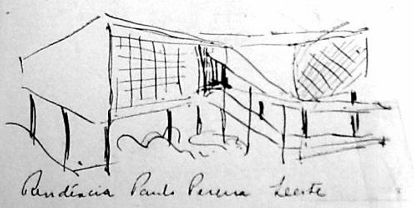 Residência Paulo Pereira Leeste